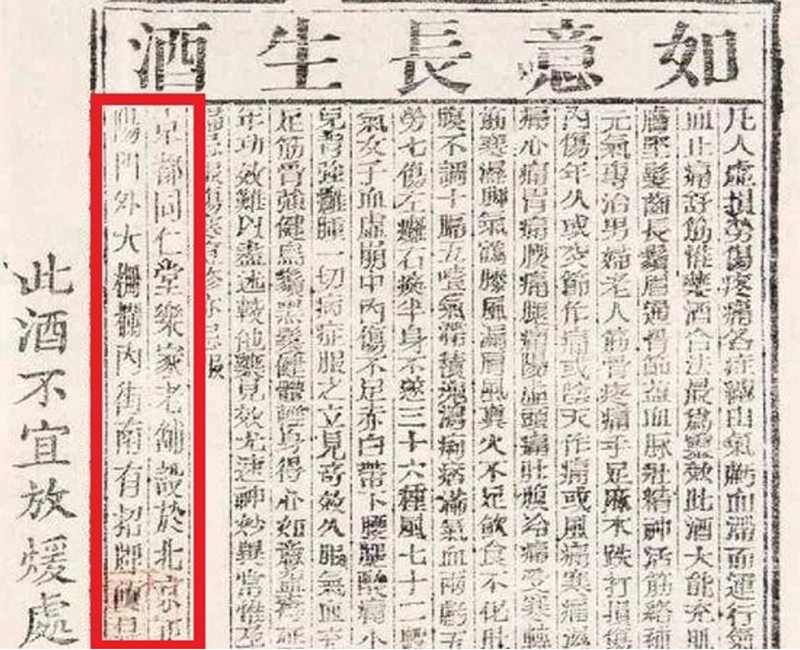 如意長生酒
凡人虛損勞傷疼痛各症由氣虧血滯而運行氣
血止痛舒筋惟藥酒合法最爲靈效此酒大能充肌
膚堅髮齒長鬚眉通骨節益血脉壯精神活筋絡補
元氣專治男婦老人筋骨疼痛手足麻木跌打損傷
內傷年久或交節作痛或陰天作痛或風痛寒痛
痛心痛胃痛腰痛腿痛陽虛頭痛肚腹冷痛受寒轉
筋寒濕脚氣鶴膝風漏肩風眞火不足飲食不化肚
腹不調十膈五噎氣滯積聚瀉痢痞滿氣血兩虧五
勞七傷左癱右瘓半身不遂三十六種風七十二
氣女子血虛崩中內傷不足赤白帶下腰腿酸痛小
兒腫一切病症服之立見奇效久服氣血至
足筋骨強健烏鬚黑髮健體輕身得心如意益壽延
年功效難以盡述較他藥見效尤速神妙異常惟
京都同仁堂樂家老舖設於北京正
陽門外大柵欄內街南有招牌便是
此酒不宜放煖處